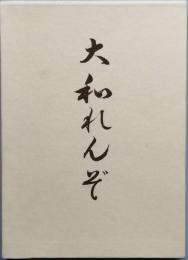 大和れんぞ